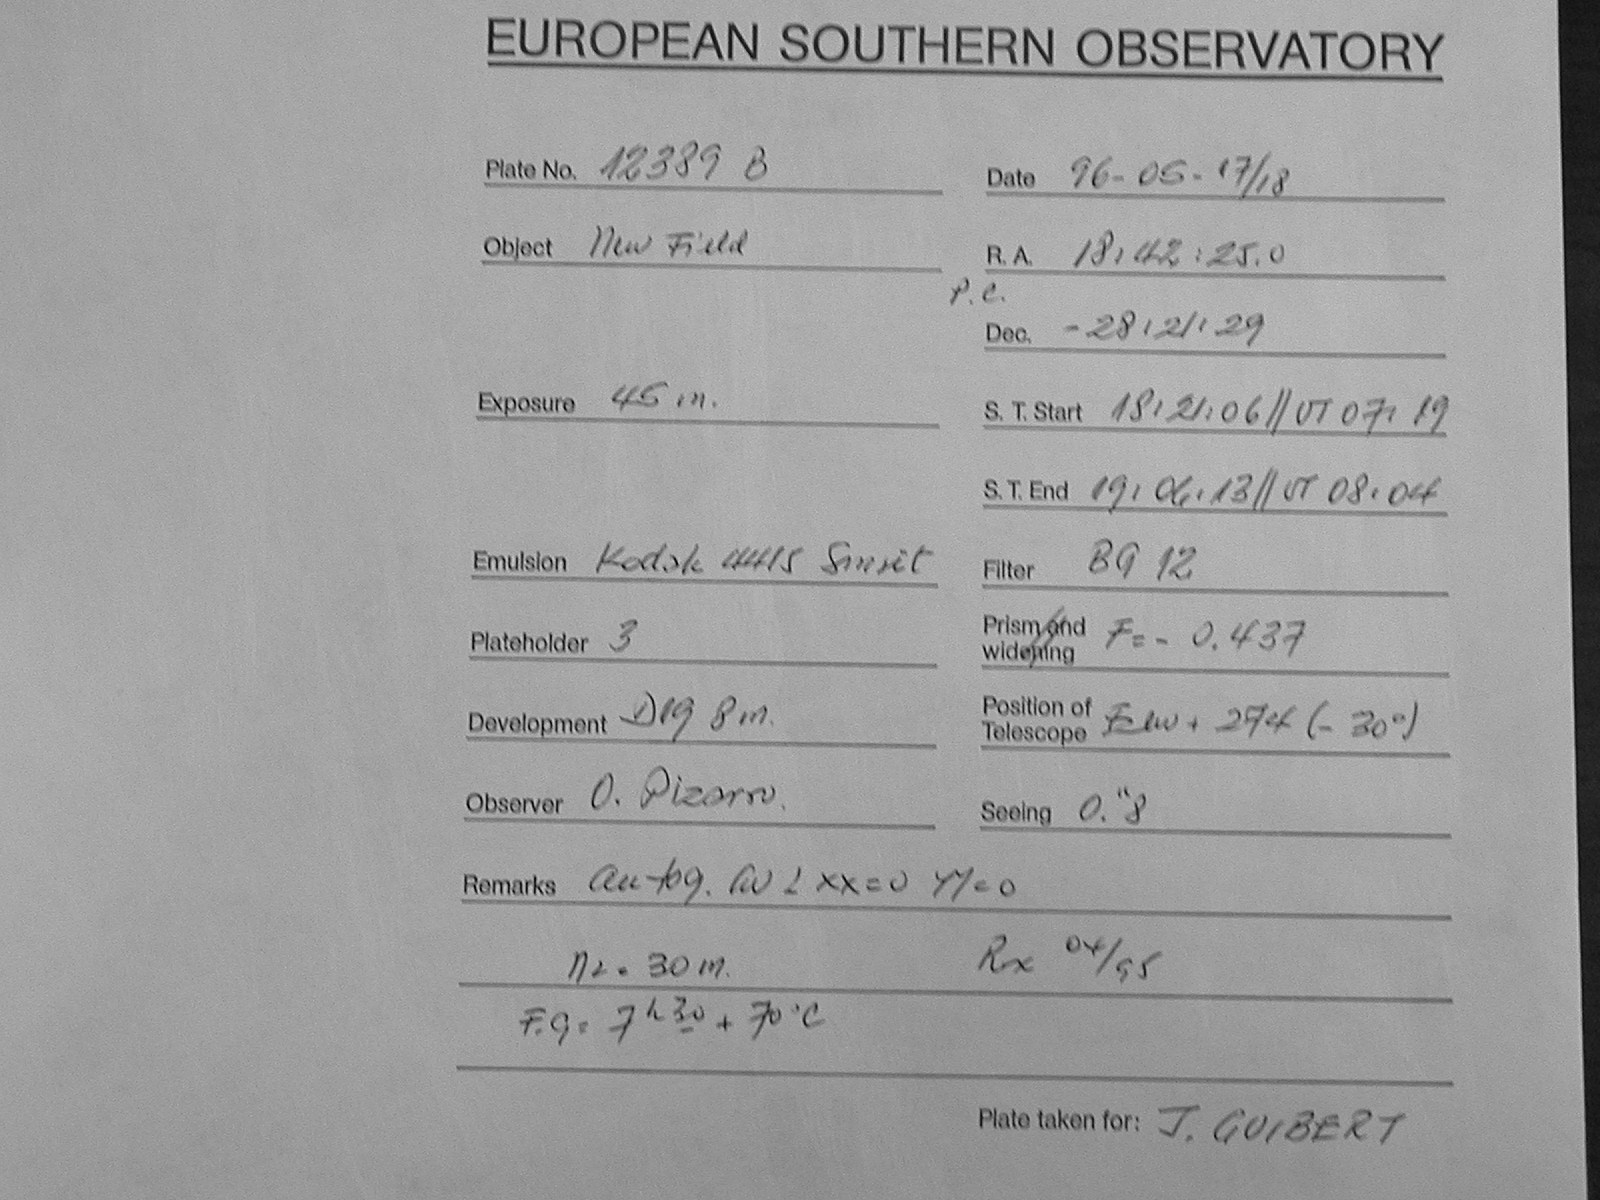 EUROPEAN SOUTHERN OBSERVATORY
Plate No. 12389 B Date 96-05-17/18
Object New Field R. A. 18:42:25.0
P.C.
Dec. -28:21:29
Exposure 45 m. S. T. Start 18:21:06//UT 07:19
S. T. End 19:06:13//UT 08:04
Emulsion Kodak 4415 Filter BG 12
Plateholder 3 Prism and widening F=- 0.437
Development D19 8m. Position of Telescope + 274 (-30°)
Observer O. Pizarro. Seeing 0."8
Remarks autog. XX=0 YY=0
N2. 30 m. Rx 04/95
F.G= 7h30 + 70°C
Plate taken for: J. GUIBERT